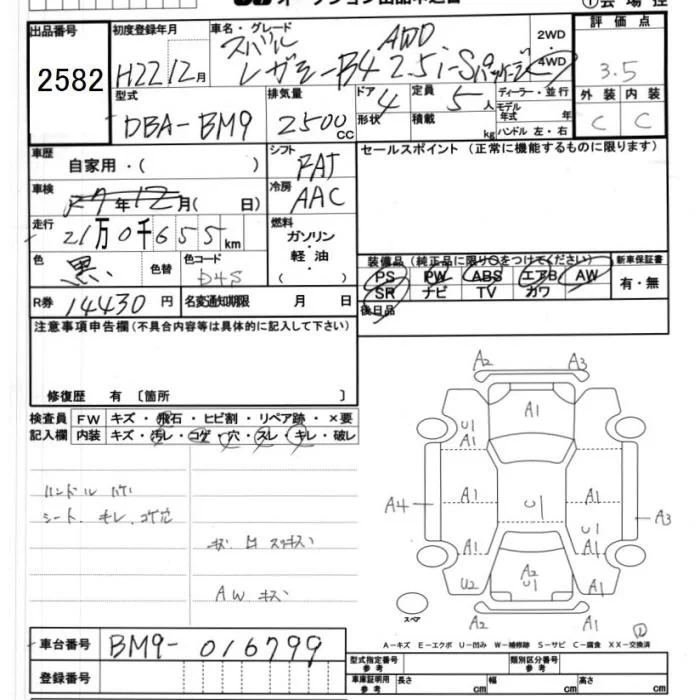 オークション出品申込書
①会場控
出品番号 初度登録年月 車名・グレード 2WD 評価点
2582 H22 12月 スバル AWD 4WD 3.5
レガシーB4 2.5i-Sパッケージ
型式 排気量 ドア 定員 ディーラー・並行 外装 内装
DBA-BM9 2500cc 4 5人 モデル年式 年 C C
形状 積載 kg ハンドル 左・右
車歴 シフト セールスポイント(正常に機能するものに限ります)
自家用・( ) FAT
車検 冷房
年12月( 日) AAC
走行 燃料
21万0千655km ガソリン
軽・油
( ・ )
色 色替 色コード 装備品(純正品に限り○をつけてください) 新車保証書
黒 D4S PS PW ABS エアB AW 有・無
SR ナビ TV カワ
R券 14430円 名変通知期限 月 日 後日品
注意事項申告欄(不具合内容等は具体的に記入して下さい)
修復歴 有 〔箇所 〕
検査員 FW キズ・飛石・ヒビ割・リペア跡・×要
記入欄 内装 キズ・汚レ・コゲ・穴・スレ・キレ・破レ
ハンドル ハゲ
シート キレ、コゲ穴
AW キズ
A2 A3
A1
U1
A1
A4 A1 U1 A1 A3
U1
A1 A1
U2 A2 U2 A1
A2 A2
スペア
A-キズ E-エクボ U-凹み W-補修跡 S-サビ C-腐食 XX-交換済
車台番号 BM9-016799
登録番号
型式指定番号 参考 類別区分番号 参考
車庫証明用 参考 長さ cm 幅 cm 高さ cm